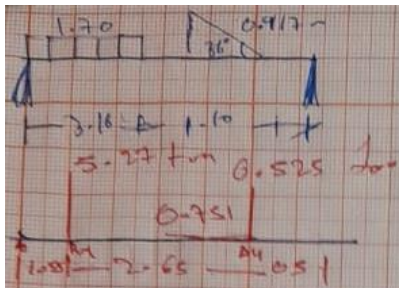 1.70 0.917
36°
3.16 1.10
5.27 ton 0.525 ton
0.751
2.65 0.51